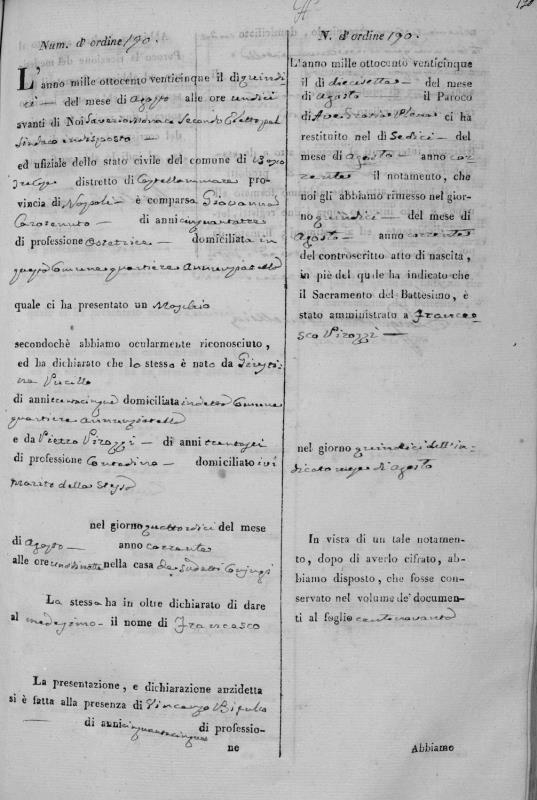 190
Num. d'ordine 190.
L'anno mille ottocento venticinque il di quindi-
ci — del mese di Agosto alle ore undici
avanti di Noi Saverio Monaca Secondo Eletto pel
Sindaco indisposto —
ed ufiziale dello stato civile del comune di Bosco
Trecase distretto di Castellammare pro-
vincia di Napoli — è comparsa Giovanna
Carotenuto — di anni cinquantatre
di professione Ostetrica — domiciliata in
questo Comune quartiere Annunziatella
quale ci ha presentato un Maschio
secondochè abbiamo ocularmente riconosciuto,
ed ha dichiarato che lo stesso è nato da
di anni trentacinque domiciliata in detto Comune
quartiere Annunziatella
e da Pietro Pirozzi — di anni trentasei
di professione Contadino — domiciliato ivi
Marito della Stessa
nel giorno quattordici del mese
di Agosto — anno corrente
alle ore nella casa de sudetti Conjugi
La stessa ha in oltre dichiarato di dare
al medesimo — il nome di Francesco
La presentazione, e dichiarazione anzidetta
si è fatta alla presenza di Vincenzo
— di anni cinquantacinque di professio-
ne
N. d'ordine 190.
L'anno mille ottocento venticinque
il di diecisette — del mese
di Agosto il Paroco
di ci ha
restituito nel di Sedici — del
mese di Agosto — anno cor-
rente il notamento, che
noi gli abbiamo rimesso nel gior-
no quindici — del mese di
Agosto — anno corrente
del controscritto atto di nascita,
in piè del quale ha indicato che
il Sacramento del Battesimo, è
stato amministrato a France-
sco Pirozzi —
nel giorno quindici dell'in-
dicato mese di Agosto
In vista di un tale notamen-
to, dopo di averlo cifrato, ab-
biamo disposto, che fosse con-
servato nel volume de' documen-
ti al foglio centonovanta
Abbiamo